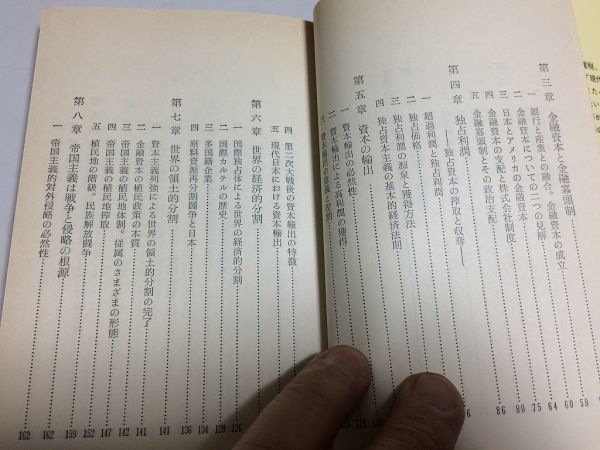 第三章 金融資本と金融寡頭制
一 銀行と産業との融合。金融資本の成立
二 金融資本についての二つの見解 60
三 日本とアメリカの金融資本 64
四 金融資本の支配と株式会社制度 75
五 金融寡頭制とその政治支配 80
第四章 独占利潤 86
――独占資本の搾取と収奪――
一 超過利潤と独占利潤
二 独占価格
三 独占利潤の源泉と獲得方法
四 独占資本主義の基本的経済法則
第五章 資本の輸出
一 資本輸出の必然性
二 資本輸出による高利潤の獲得
三 資本輸出の
四 第二次大戦後の資本輸出の特徴
五 現代日本における資本輸出
第六章 世界の経済的分割 126
一 国際独占体による世界の経済的分割 126
二 国際カルテルの歴史 129
三 多国籍企業 134
四 原料資源再分割闘争と日本 136
第七章 世界の領土的分割 141
一 資本主義列強による世界の領土的分割の完了 141
二 金融資本の植民政策の本質 142
三 帝国主義の植民地体制。従属のさまざまの形態 147
四 帝国主義の植民地搾取 152
五 植民地の階級。民族解放闘争 159
第八章 帝国主義は戦争と侵略の根源 162
一 帝国主義的対外侵略の必然性 162